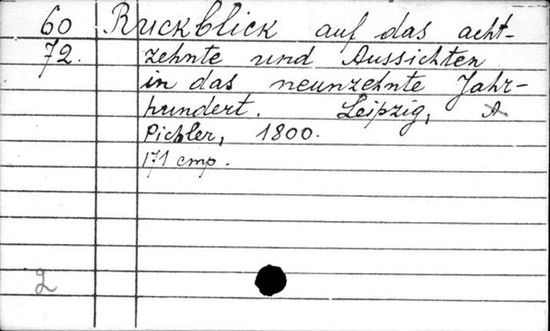 60 Rückblick auf das acht-
72. zehnte und Aussichten
in das neunzehnte Jahr-
hundert. Leipzig, A
Pichler, 1800.
171 стр.
2